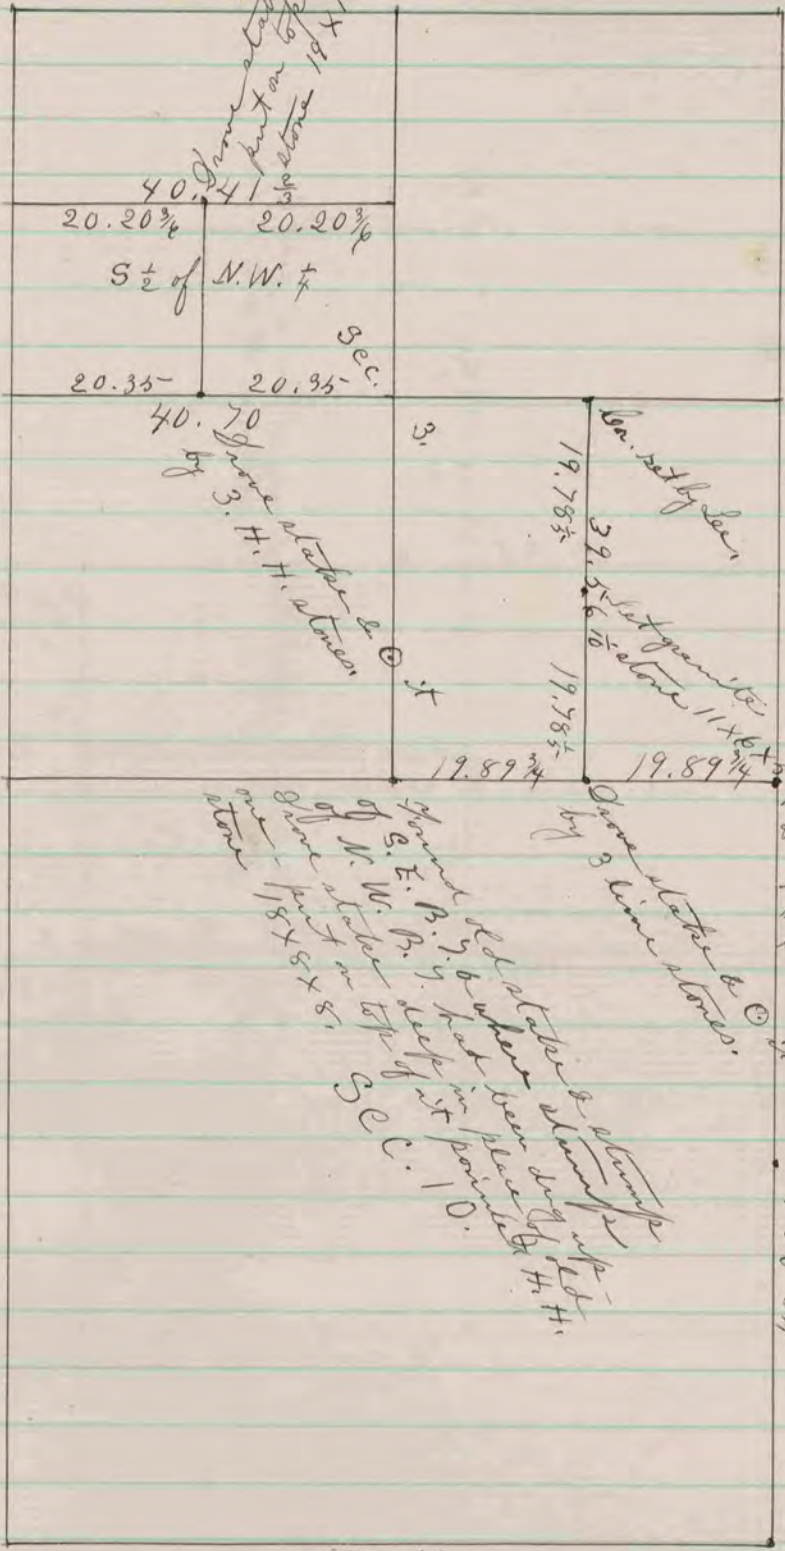 Drove
put on top
stone 18 x
40.41 2/3
20.20 3/6 20.20 3/6
S 1/2 of N.W. 1/4
Sec.
20.35 20.35
40.70
3.
Drove stake & ⊙ it
by 3. H. H. stones.
Cor. set by Lee.
19.78 1/5
39.56 1/10
Set granite
stone 11 x 6 x
19.78 1/5
19.89 3/4 19.89 3/4
Drove stake & ⊙ it
by 3 lime stones.
Found old stake & stump
of S. E. B. T. & where stumps
of N. W. B. T. had been dug up -
Drove stake deep in place of old
one - put on top of it pointed H. H.
stone 18 x 8 x 8.
SEC. 10.